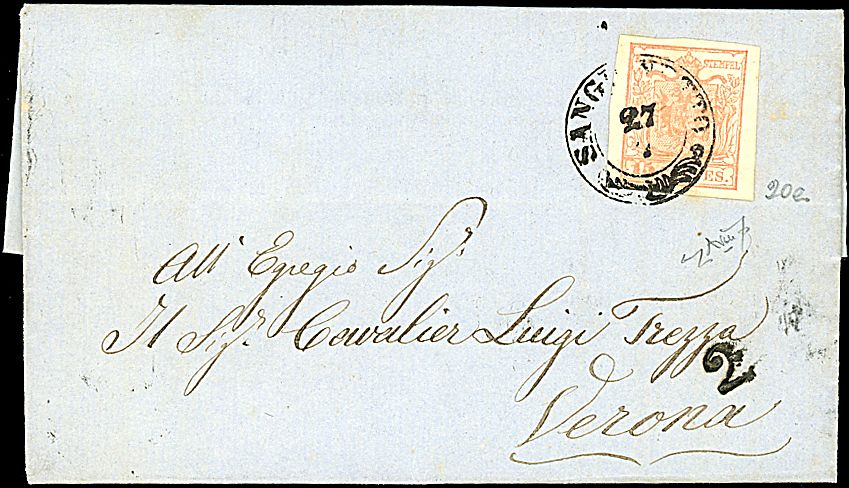 STEMPEL
27
15 CES.
20c
All' Egregio Sig.r
Il Sig.r Cavalier Luigi Trezza
2
Verona